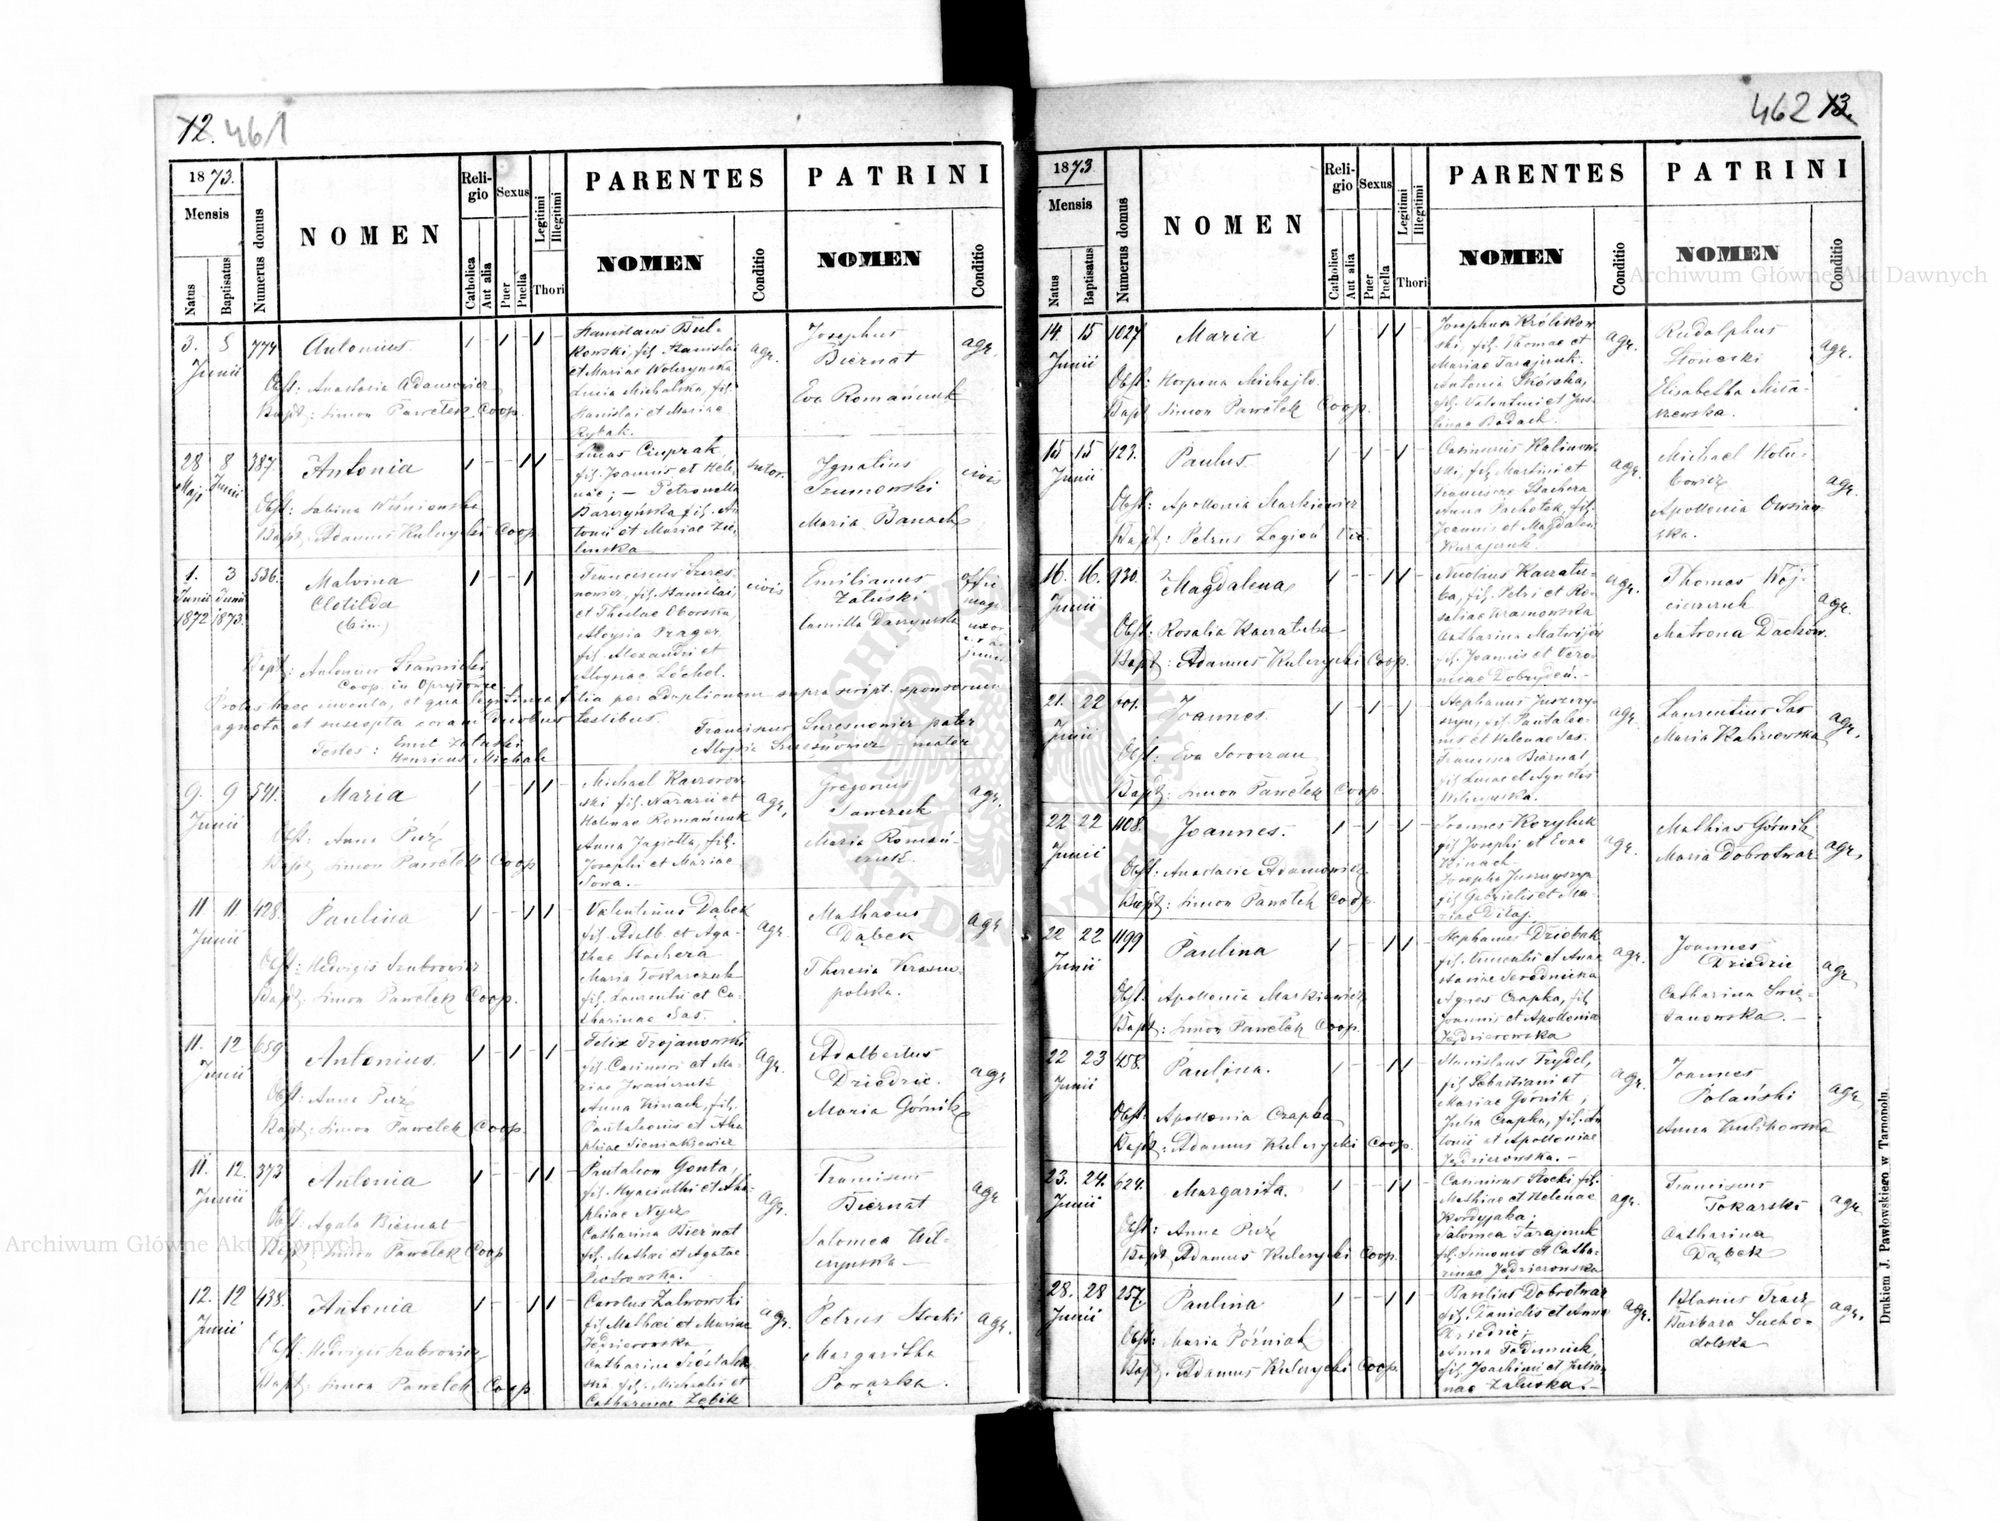 12. 461
1873.
Mensis
Natus
Baptisatus
Numerus domus
NOMEN
Religio
Catholica
Aut alia
Sexus
Puer
Puella
Legitimi
Illegitimi
Thori
PARENTES
NOMEN
Conditio
PATRINI
NOMEN
Conditio
3. 8 Junii 774
Antonius
Obst: Anastasia Adamowicz
Bapt: Simon Pawełek Coop.
fil. Stanislai
et Mariae
Lucia Michalska, fil.
Stanislai et Mariae
Rybak.
agr.
Josephus
Biernat
Eva Romańczuk
agr.
28 Maji 8 Junii 387.
Antonia
Obst: Sabina Wiśniewska
Bapt: Adamus Kulczycki Coop.
Lucas Ciuprak,
fil. Joannis et Hele-
nae; – Petronella
Barczyńska fil. An-
tonii et Mariae Zie-
linska
sutor.
Ignatius
Szumowski
Maria Banach
civis
1. Junii 1872 3 Junii 1873. 536.
Malvina
Clotilda
(bin.)
Bapt: Antonius
Coop. in
Franciscus
fil. Stanislai
et Theclae Oborska,
Aloysia Prager,
fil. Alexandri et
civis
Emilianus
Załuski
Camilla
Proles haec inventa, et qua legitima filia per adoptionem supra script. sponsorum
agnota et suscepta coram duobus testibus.
Franciscus pater
Aloysia mater
Testes: Emil Załuski
Henricus Michale
9. 9 Junii 541.
Maria
Obst: Anna Puź
Bapt: Simon Pawełek Coop
Michael
fil. Nazarii et
Helenae Romańczuk
Anna Jagiołła, fil.
Josephi et Mariae
Sowa.
agr,
Gregorius
Sawczuk
Maria Romań-
czuk.
agr.
11 11 Junii 428.
Paulina
Obst: Hedvigis
Bapt: Simon Pawełek Coop.
Valentinus Dąbek
fil. Adalb. et Aga-
thae Stachera
Maria Tokarczuk
fil. Laurentii et Ca-
tharinae Sas.
agr.
Mathaeus
Dąbek
Theresia Krasno-
polska.
agr
11. 12 Junii 659
Antonius.
Obst: Anna Puź
Bapt: Simon Pawełek Coop.
Felix Trojanowski
fil. Casimiri et Ma-
riae Iwańczuk
Anna Kinach, fil.
Pantaleonis et Aga-
phiae Sieniakiewicz
agr.
Adalbertus
Dziedzic.
Maria Górnik
agr
11. 12. Junii 373
Antonia
Obst: Agata Biernat
Bapt: Simon Pawełek Coop
Pantaleon Gonta,
fil. Hyacinthi et Aga-
phiae
Catharina Biernat
fil. Mathaei et Agatae
Piotrowska.
agr.
Franciscus
Biernat
Salomea Wil-
czyńska
agr
12. 12 Junii 438.
Antonia
Obst: Hedvigis
Bapt: Simon Pawełek Coop
Carolus Zalewski
fil. Mathaei et Marinae
Jędzierowska
Catharina
fil. Michaeli et
Catharinae Zębik
agr.
Petrus Stocki
Margaritha
Powązka.
agr.
462 13.
1873.
Mensis
Natus
Baptisatus
Numerus domus
NOMEN
Religio
Catholica
Aut alia
Sexus
Puer
Puella
Legitimi
Illegitimi
Thori
PARENTES
NOMEN
Conditio
PATRINI
NOMEN
Conditio
14. 15 Junii 1027.
Maria
Obst: Horpyna Michajło.
Bapt: Simon Pawełek Coop.
Josephus Królikow-
ski, fil. Thomae et
Mariae Tarajczuk.
Antonia Skórska,
fil. Valentini et Jus-
tinae Badach.
agr.
Rudolphus
Słonecki
Elisabetha
agr.
15 15 Junii 423.
Paulus.
Obst: Apollonia Markiewicz
Bapt: Petrus Legień Vic.
Casimirus Kalinow-
ski, fil. Martini et
Franciscae Stachera
Anna Pachołek, fil.
Joannis et Magdalen.
Kurajczuk.
agr.
Michael Hołu-
bowicz
Apollonia Owsian-
ska.
agr.
16. 16. Junii 930.
Magdalena
Obst: Rosalia Kaczatuba
Bapt: Adamus Kulczycki Coop.
Nicolaus Kaczatu-
ba, fil. Petri et Ro-
saliae Krasnowska
Catharina Matwijów
fil. Joannis et Vero-
nicae Dobrydeń.
agr.
Thomas Woj-
cieszczuk
Matrona Daćków.
agr.
21. 22 Junii 601.
Joannes.
Obst: Eva
Bapt: Simon Pawełek Coop.
Stephanus Juszczy-
szyn, fil. Pantaleo-
nis et Helenae Sas.
Francisca Biernat
fil. Lucae et Agnetis
Wilczyńska.
agr.
Laurentius Sas
Maria Kalinowska
agr.
22 22 Junii 1108.
Joannes.
Obst: Anastasia Adamowicz
Bapt: Simon Pawełek Coop.
Joannes Korzybek
fil. Josephi et Evae
Kinach
Josepha Juszczyszyn
fil. Gabrielis et Ma-
riae Ditaj.
agr.
Mathias Górnik
Maria Dobrotwor
agr,
22 22 Junii 1199
Paulina
Obst. Apollonia Markiewicz
Bapt: Simon Pawełek Coop.
Stephanus Dziobak
fil. Vincentii et Anas-
tasiae Serednicka
Agnes Czapka, fil.
Joannis et Apollonia
Jędzierowska
agr.
Joannes
Dziedzic
Catharina Swie-
tanowska.
agr.
22 23 Junii 458.
Paulina.
Obst: Apollonia Czapka
Bapt: Adamus Kulczycki Coop.
Stanislaus Frydel,
fil. Sebastiani et
Mariae Górnik,
Julia Czapka, fil. An-
tonii et Apolloniae
Jędzierowska.
agr.
Joannes
Polański
Anna Kulikowska
agr
23. 24. Junii 624.
Margarita.
Obst: Anna Puź
Bapt. Adamus Kulczycki Coop.
Casimirus Stocki fil.
Mathiae et Helenae
Kordyjaka;
Salomea Tarajczuk
fil. Simonis et Catha-
rinae Jędzierowska
agr.
Franciscus
Tokarski
Catharina
Dąbek
agr.
28. 28 Junii 257.
Paulina
Obst: Maria Późniak
Bapt. Adamus Kulczycki Coop.
Basilius Dobrotwor
fil. Danielis et Anna
Dziedzic;
Anna
fil. Joachimi et Julian-
nae Załuska.
agr.
Blasius Tracz
Barbara Sucho-
dolska
agr.
Drukiem J. Pawłowskiego w Tarnopolu.
Archiwum Główne Akt Dawnych
Archiwum Główne Akt Dawnych
ARCHIWUM GŁÓWNE AKT DAWNYCH